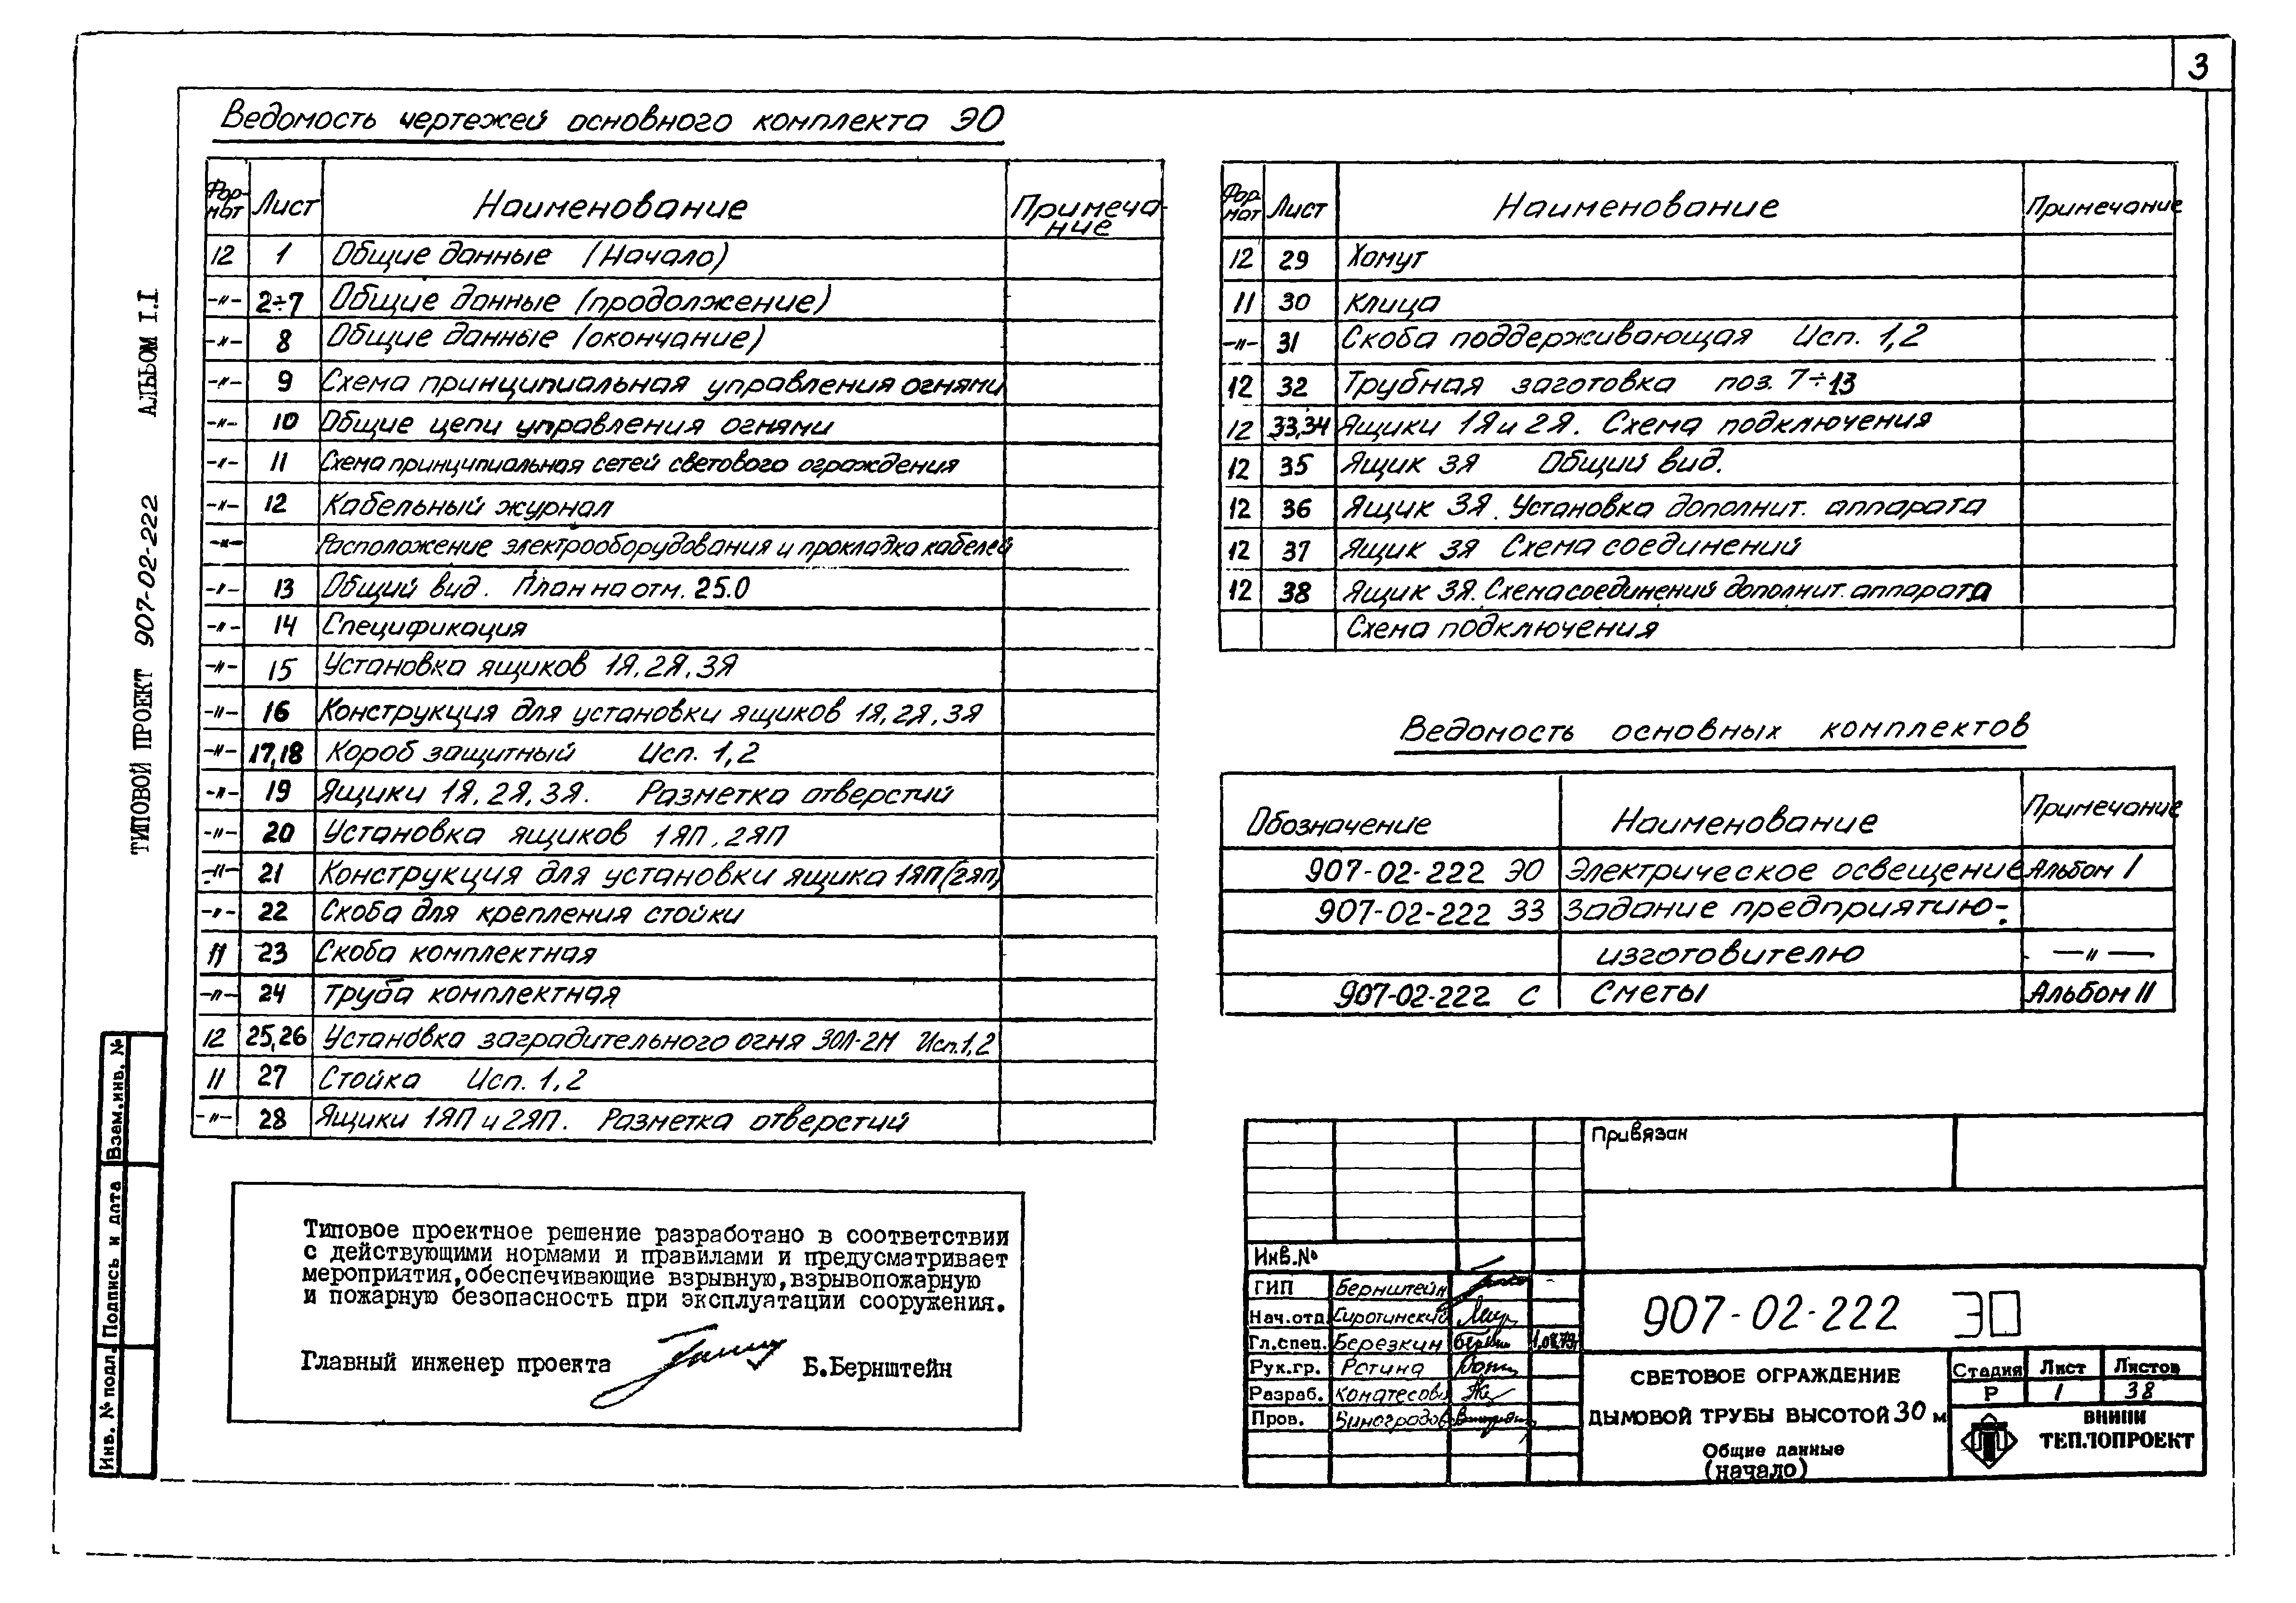 3
Ведомость чертежей основного комплекта ЭО
Фор-мат Лист Наименование Примеча-ние
12 1 Общие данные (Начало)
-"- 2÷7 Общие данные (продолжение)
-"- 8 Общие данные (окончание)
-"- 9 Схема принципиальная управления огнями
-"- 10 Общие цепи управления огнями
-"- 11 Схема принципиальная сетей светового ограждения
-"- 12 Кабельный журнал
-"- Расположение электрооборудования и прокладка кабелей
-"- 13 Общий вид. План на отм. 25.0
-"- 14 Спецификация
-"- 15 Установка ящиков 1Я, 2Я, 3Я
-"- 16 Конструкция для установки ящиков 1Я, 2Я, 3Я
-"- 17,18 Короб защитный Исп. 1,2
-"- 19 Ящики 1Я, 2Я, 3Я. Разметка отверстий
-"- 20 Установка ящиков 1ЯП, 2ЯП
-"- 21 Конструкция для установки ящика 1ЯП(2ЯП)
-"- 22 Скоба для крепления стойки
11 23 Скоба комплектная
-"- 24 Труба комплектная
12 25,26 Установка заградительного огня ЗОЛ-2М Исп. 1,2
11 27 Стойка Исп. 1,2
-"- 28 Ящики 1ЯП и 2ЯП. Разметка отверстий
Фор мат Лист Наименование Примечание
12 29 Хомут
11 30 Клица
-"- 31 Скоба поддерживающая Исп. 1,2
12 32 Трубная заготовка поз. 7÷13
12 33,34 Ящики 1Я и 2Я. Схема подключения
12 35 Ящик 3Я Общий вид.
12 36 Ящик 3Я. Установка дополнит. аппарата
12 37 Ящик 3Я Схема соединений
12 38 Ящик 3Я. Схема соединений дополнит. аппарата
Схема подключения
Ведомость основных комплектов
Обозначение Наименование Примечание
907-02-222 ЭО Электрическое освещение Альбом I
907-02-222 ЗЗ Задание предприятию-
изготовителю -"-
907-02-222 С Сметы Альбом II
Типовое проектное решение разработано в соответствии
с действующими нормами и правилами и предусматривает
мероприятия, обеспечивающие взрывную, взрывопожарную
и пожарную безопасность при эксплуатации сооружения.
Главный инженер проекта Б.Бернштейн
Привязан
Инв.№
ГИП Бернштейн
Нач.отд. Сиротинский
Гл.спец. Березкин
Рук.гр. Ратина
Разраб.
Пров. Виноградов
907-02-222 ЭО
СВЕТОВОЕ ОГРАЖДЕНИЕ
ДЫМОВОЙ ТРУБЫ ВЫСОТОЙ 30 м
Стадия Лист Листов
Р 1 38
Общие данные
(начало)
ВНИПИ
ТЕПЛОПРОЕКТ
ТИПОВОЙ ПРОЕКТ 907-02-222 АЛЬБОМ I.I
Инв. № подл. Подпись и дата Взам.инв. №